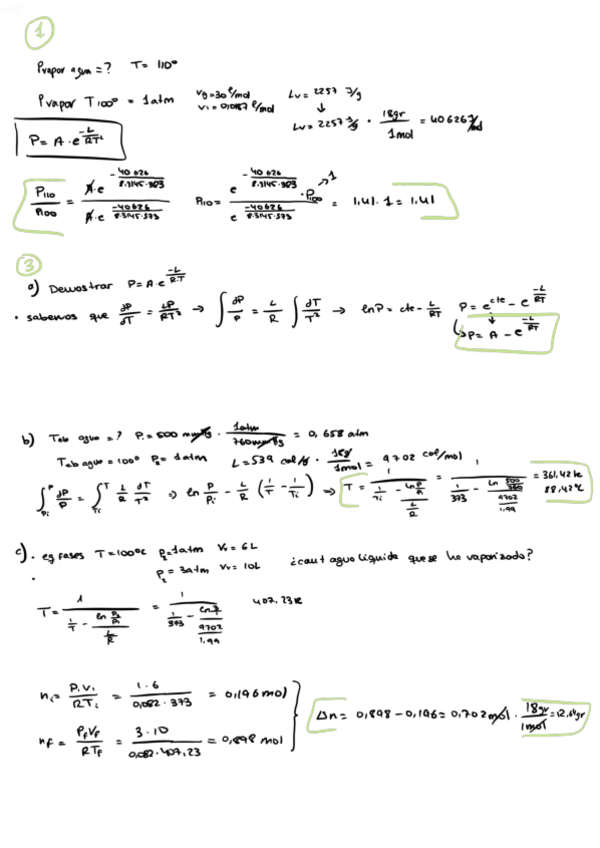 1
Pvapor agua = ? T = 110°
Pvapor T100° = 1atm Vg = 30 l/mol Lv = 2257 J/g
Vl = 0,0187 l/mol ↓
Lv = 2257 J/g · 18gr/1mol = 40626 J/mol
P = A · e^(-L/RT²)
P110/P100 = A·e^(-40626/8.3145·383) / A·e^(-40626/8.3145·373) P110 = e^(-40626/8.3145·383) / e^(-40626/8.3145·373) · P100 → 1 = 1,41 · 1 = 1,41
3
a) Demostrar P = A · e^(-L/R·T)
• sabemos que dP/dT = LP/RT² → ∫ dP/P = L/R ∫ dT/T² → lnP = cte - L/RT P = e^cte - e^(-L/RT)
↳ P = A - e^(-L/RT)
b) Teb agua = ? Pi = 500 mmHg · 1atm/760mmHg = 0,658 atm
Teb agua = 100° P2 = 1atm L = 539 cal/g · 18g/1mol = 9702 cal/mol
∫ Pi P dP/P = ∫ Ti T L/R dT/T² ⇒ ln P/Pi - L/R (1/T - 1/Ti) ⇒ T = 1 / (1/Ti - ln P/Pi / L/R) = 1 / (1/373 - ln 500/760 / 9702/1,99) = 361,42k
88,42ºC
c) • eq fases T = 100ºC P1 = 1atm Vv = 6L
• P2 = 3atm Vv = 10L ¿cant agua líquida que se ha vaporizado?
T = 1 / (1/T - ln P2/P1 / L/R) = 1 / (1/373 - ln 3 / 9702/1,99) 407,23k
ni = Pi·Vi/RTi = 1·6/0,082·373 = 0,196 mol
nf = PfVf/RTf = 3·10/0,082·407,23 = 0,898 mol
Δn = 0,898 - 0,196 = 0,702 mol · 18gr/1mol = 12,64gr